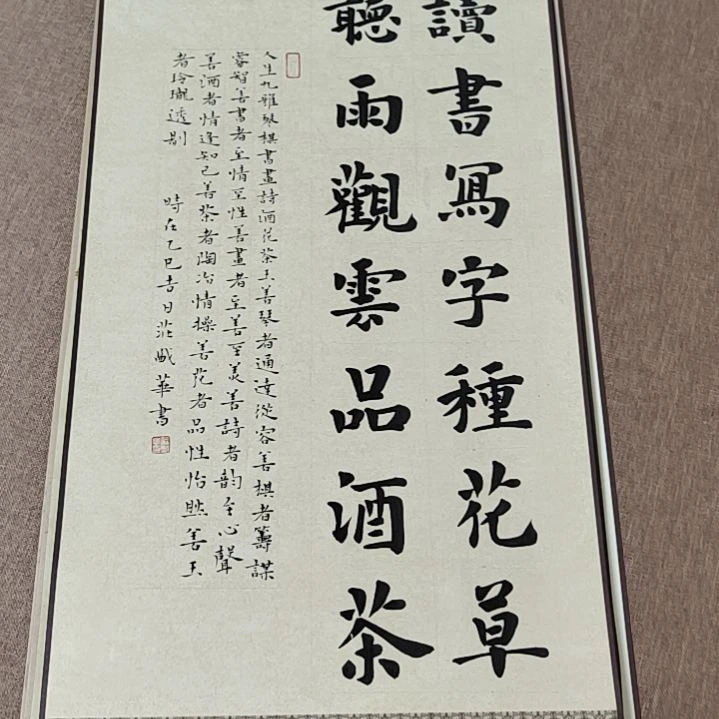 讀書寫字種花草
聽雨觀雲品酒茶
人生九雅琴棋書畫詩酒花茶玉善琴者通達從容善棋者籌謀
睿智善書者至情至性善畫者至善至美善詩者韵至心聲
善酒者情逢知己善茶者陶冶情操善花者品性怡然善玉
者玲瓏透剔
時在乙巳吉日莊
華書